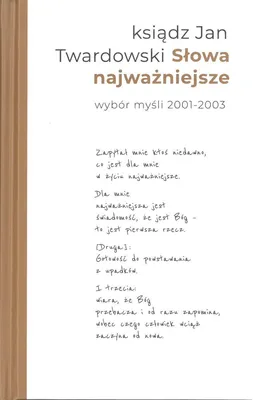 ksiądz Jan
Twardowski Słowa
najważniejsze
wybór myśli 2001-2003
Zapytał mnie ktoś niedawno,
co jest dla mnie
w życiu najważniejsze.
Dla mnie
najważniejsza jest
świadomość, że jest Bóg –
to jest pierwsza rzecz.
[Druga]:
Gotowość do powstawania
z upadków.
I trzecia:
wiara, że Bóg
przebacza i od razu zapomina,
wobec czego człowiek wciąż
zaczyna od nowa.